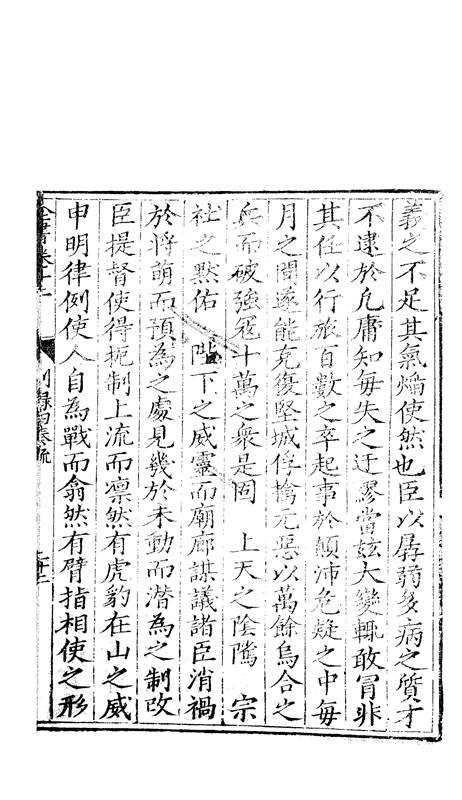 義之不足其氣燄使然也臣以孱弱多病之質才
不逮於凡庸知每失之迂繆當兹大變輒敢冒非
其任以行旅百數之卒起事於顛沛危疑之中每
月之間遂能克復堅城俘擒元惡以萬餘烏合之
兵而破強寇十萬之衆是固 上天之陰隲 宗
社之黙佑 陛下之威靈而廟廊謀議諸臣消禍
於將萌而預為之處見幾於未動而潛為之制改
臣提督使得扼制上流而凛然有虎豹在山之威
申明律例使人自為戰而翕然有臂指相使之形
全書卷十二 別録四奏疏